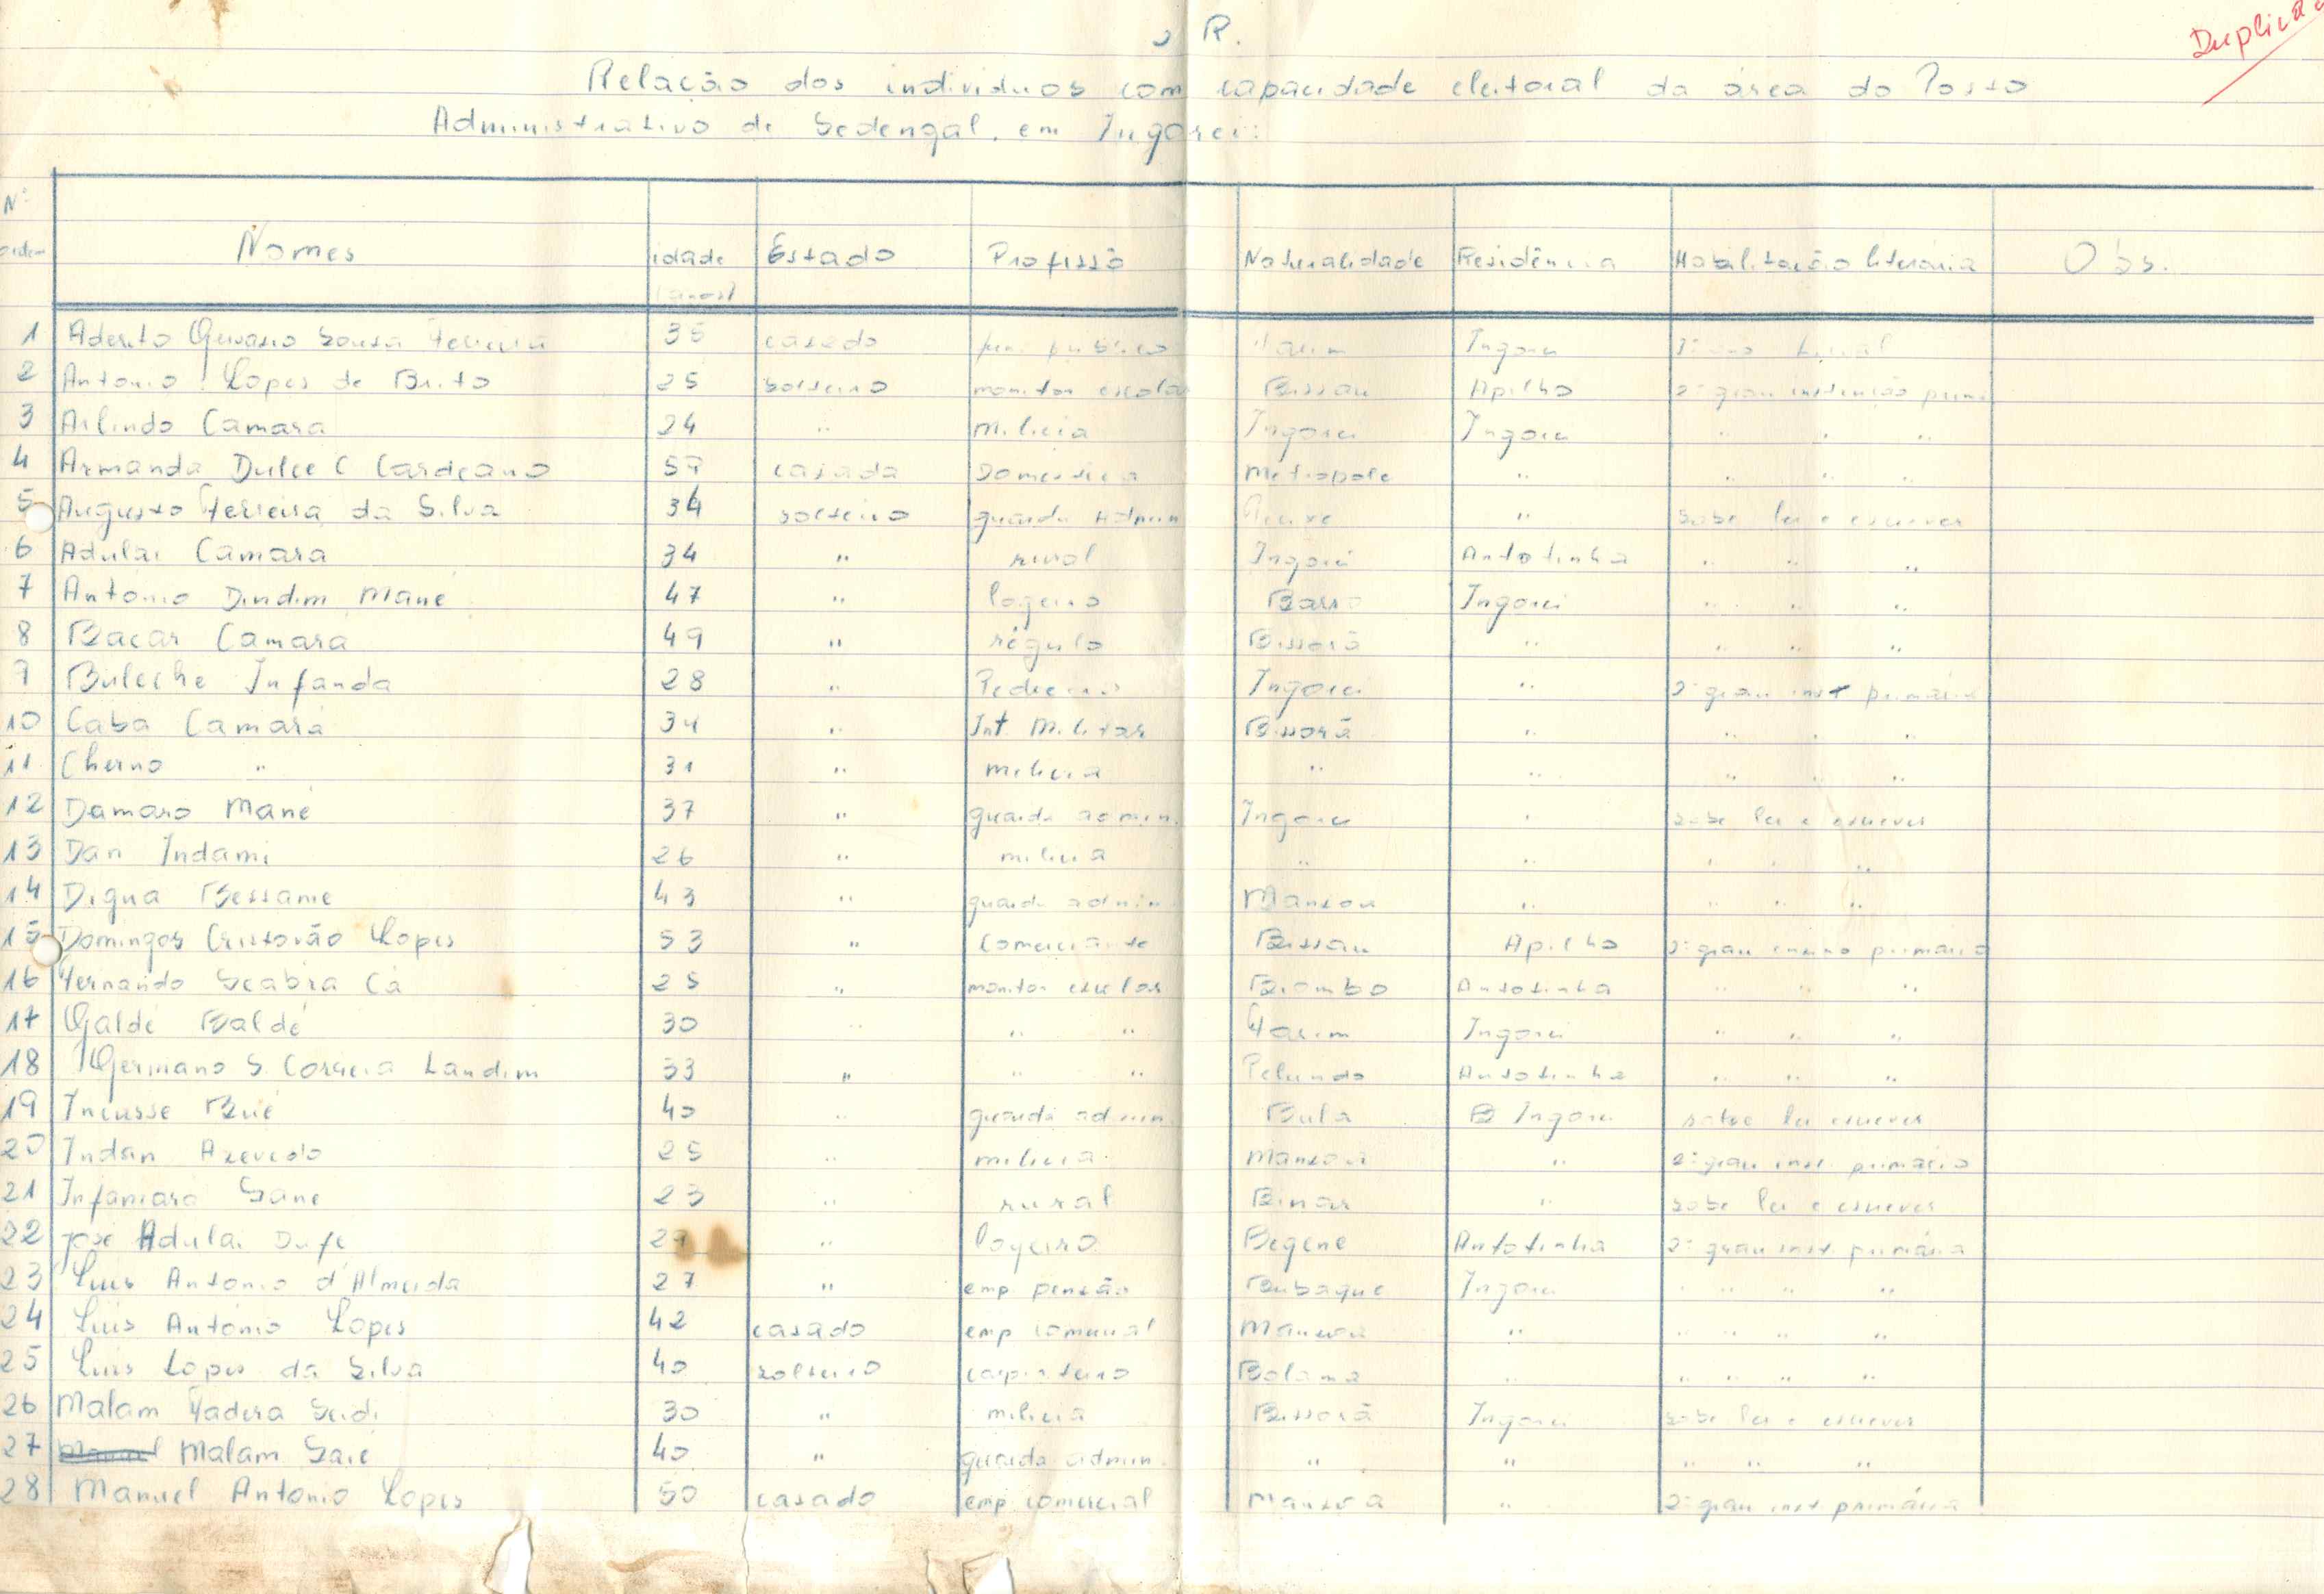 R.
Relação dos individuos com capacidade eleitoral da área do Posto
Administrativo de Sedengal, em Ingorei:
Nº ordem Nomes idade (anos) Estado Profissõ Naturalidade Residência Habilitação literária Obs.
1 Aderito Gervasio Sousa Ferreira 35 casado fun. publico Farim Ingorei 1º ano
2 Antonio Lopes de Brito 25 solteiro monitor escolar Bissau Apilho 2º grau instrução prim
3 Arlindo Camara 24 " milicia Ingorei Ingorei " " "
4 Armanda Dulce C Cardeano casada Domestica Metropole " " " "
5 Augusto Ferreira da Silva 34 solteiro guarda Admin " sabe ler e escrever
6 Adulai Camara 34 " rural Ingorei Antotinha " " "
7 António Dindim Mané 47 " logeiro Barro Ingorei " " "
8 Bacar Camara 49 " régulo Bissorã " " " "
9 Buleche Infanda 28 " Pedreiro Ingorei " 2º grau inst primária
10 Caba Camara 34 " Int. Militar Bissorã " " " "
11 Cherno " 31 " milicia " " " " "
12 Damaro Mané 37 " guarda admin. Ingorei " sabe ler e escrever
13 Dan Indami 26 " milicia " " " " "
14 Digna Bessame 43 " guarda admin. Mansoa " " " "
15 Domingos Cristovão Lopes 53 " Comerciante Bissau Apilho 2º grau ensino primario
16 Fernando Seabra Cá 25 " monitor escolar Biombo Antotinha " " "
17 Galdé Baldé 30 " " " Farim Ingorei " " "
18 Germano S. Correia Landim 33 " " " Pelundo Antotinha " " "
19 Incusse Bué 40 " guarda admin. Bula B Ingorei sabe ler escrever
20 Indan Azevedo 25 " milicia Mansoa " 2º grau inst. primário
21 Infamara Sane 23 " rural Binar " sabe ler e escrever
22 José Adulai Dufe " logeiro Begene Antotinha 2º grau inst. primária
23 Luis Antonio d'Almeida 27 " emp pensão Bubaque Ingorei " " " "
24 Luis António Lopes 42 casado emp comercial Mansoa " " " " "
25 Luis Lopes da Silva 40 solteiro carpinteiro Bolama " " " " "
26 Malam Fadera Seidi 30 " milicia Bissorã Ingorei sabe ler e escrever
27 Malam Saré 40 " guarda admin. " " " " "
28 Manuel Antonio Lopes 50 casado emp comercial Mansoa " 2º grau inst primária